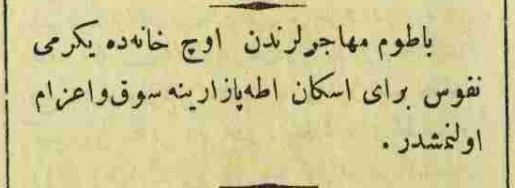 باطوم مهاجرلرندن اوچ خانه‌ده یکرمی
نفوس برای اسکان اطه‌پازارینه سوق و اعزام
اولنمشدر .